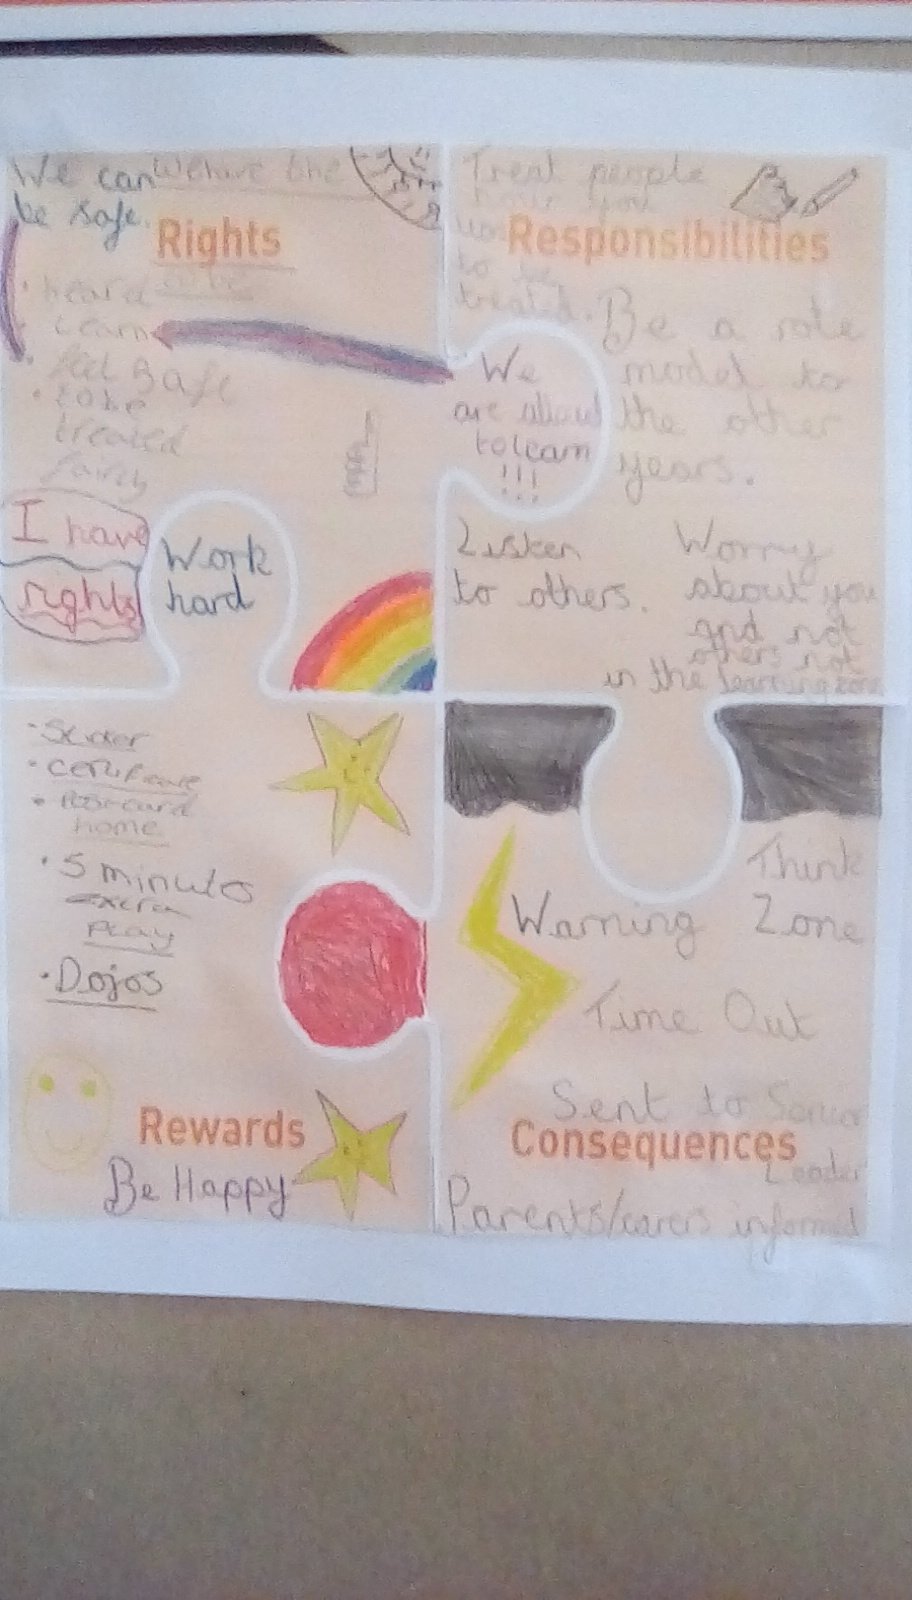 We can We have the
be safe.
Rights
• heard
• Learn
• feel safe
• to be
treated
fairly
I have
rights
Work
hard
Treat people
how you
Responsibilities
to be
treated.
Be a role
model to
the other
years.
We
are allowed
to learn
!!!
Listen
to others.
Worry
about you
and not
others not
in the learning zone
• Sticker
• certificate
• Postcard
home
• 5 minutes
extra
Play
• Dojos
Rewards
Be Happy
Think
Warning Zone
Time Out
Sent to Senior
Consequences
Leader
Parents/carers informed